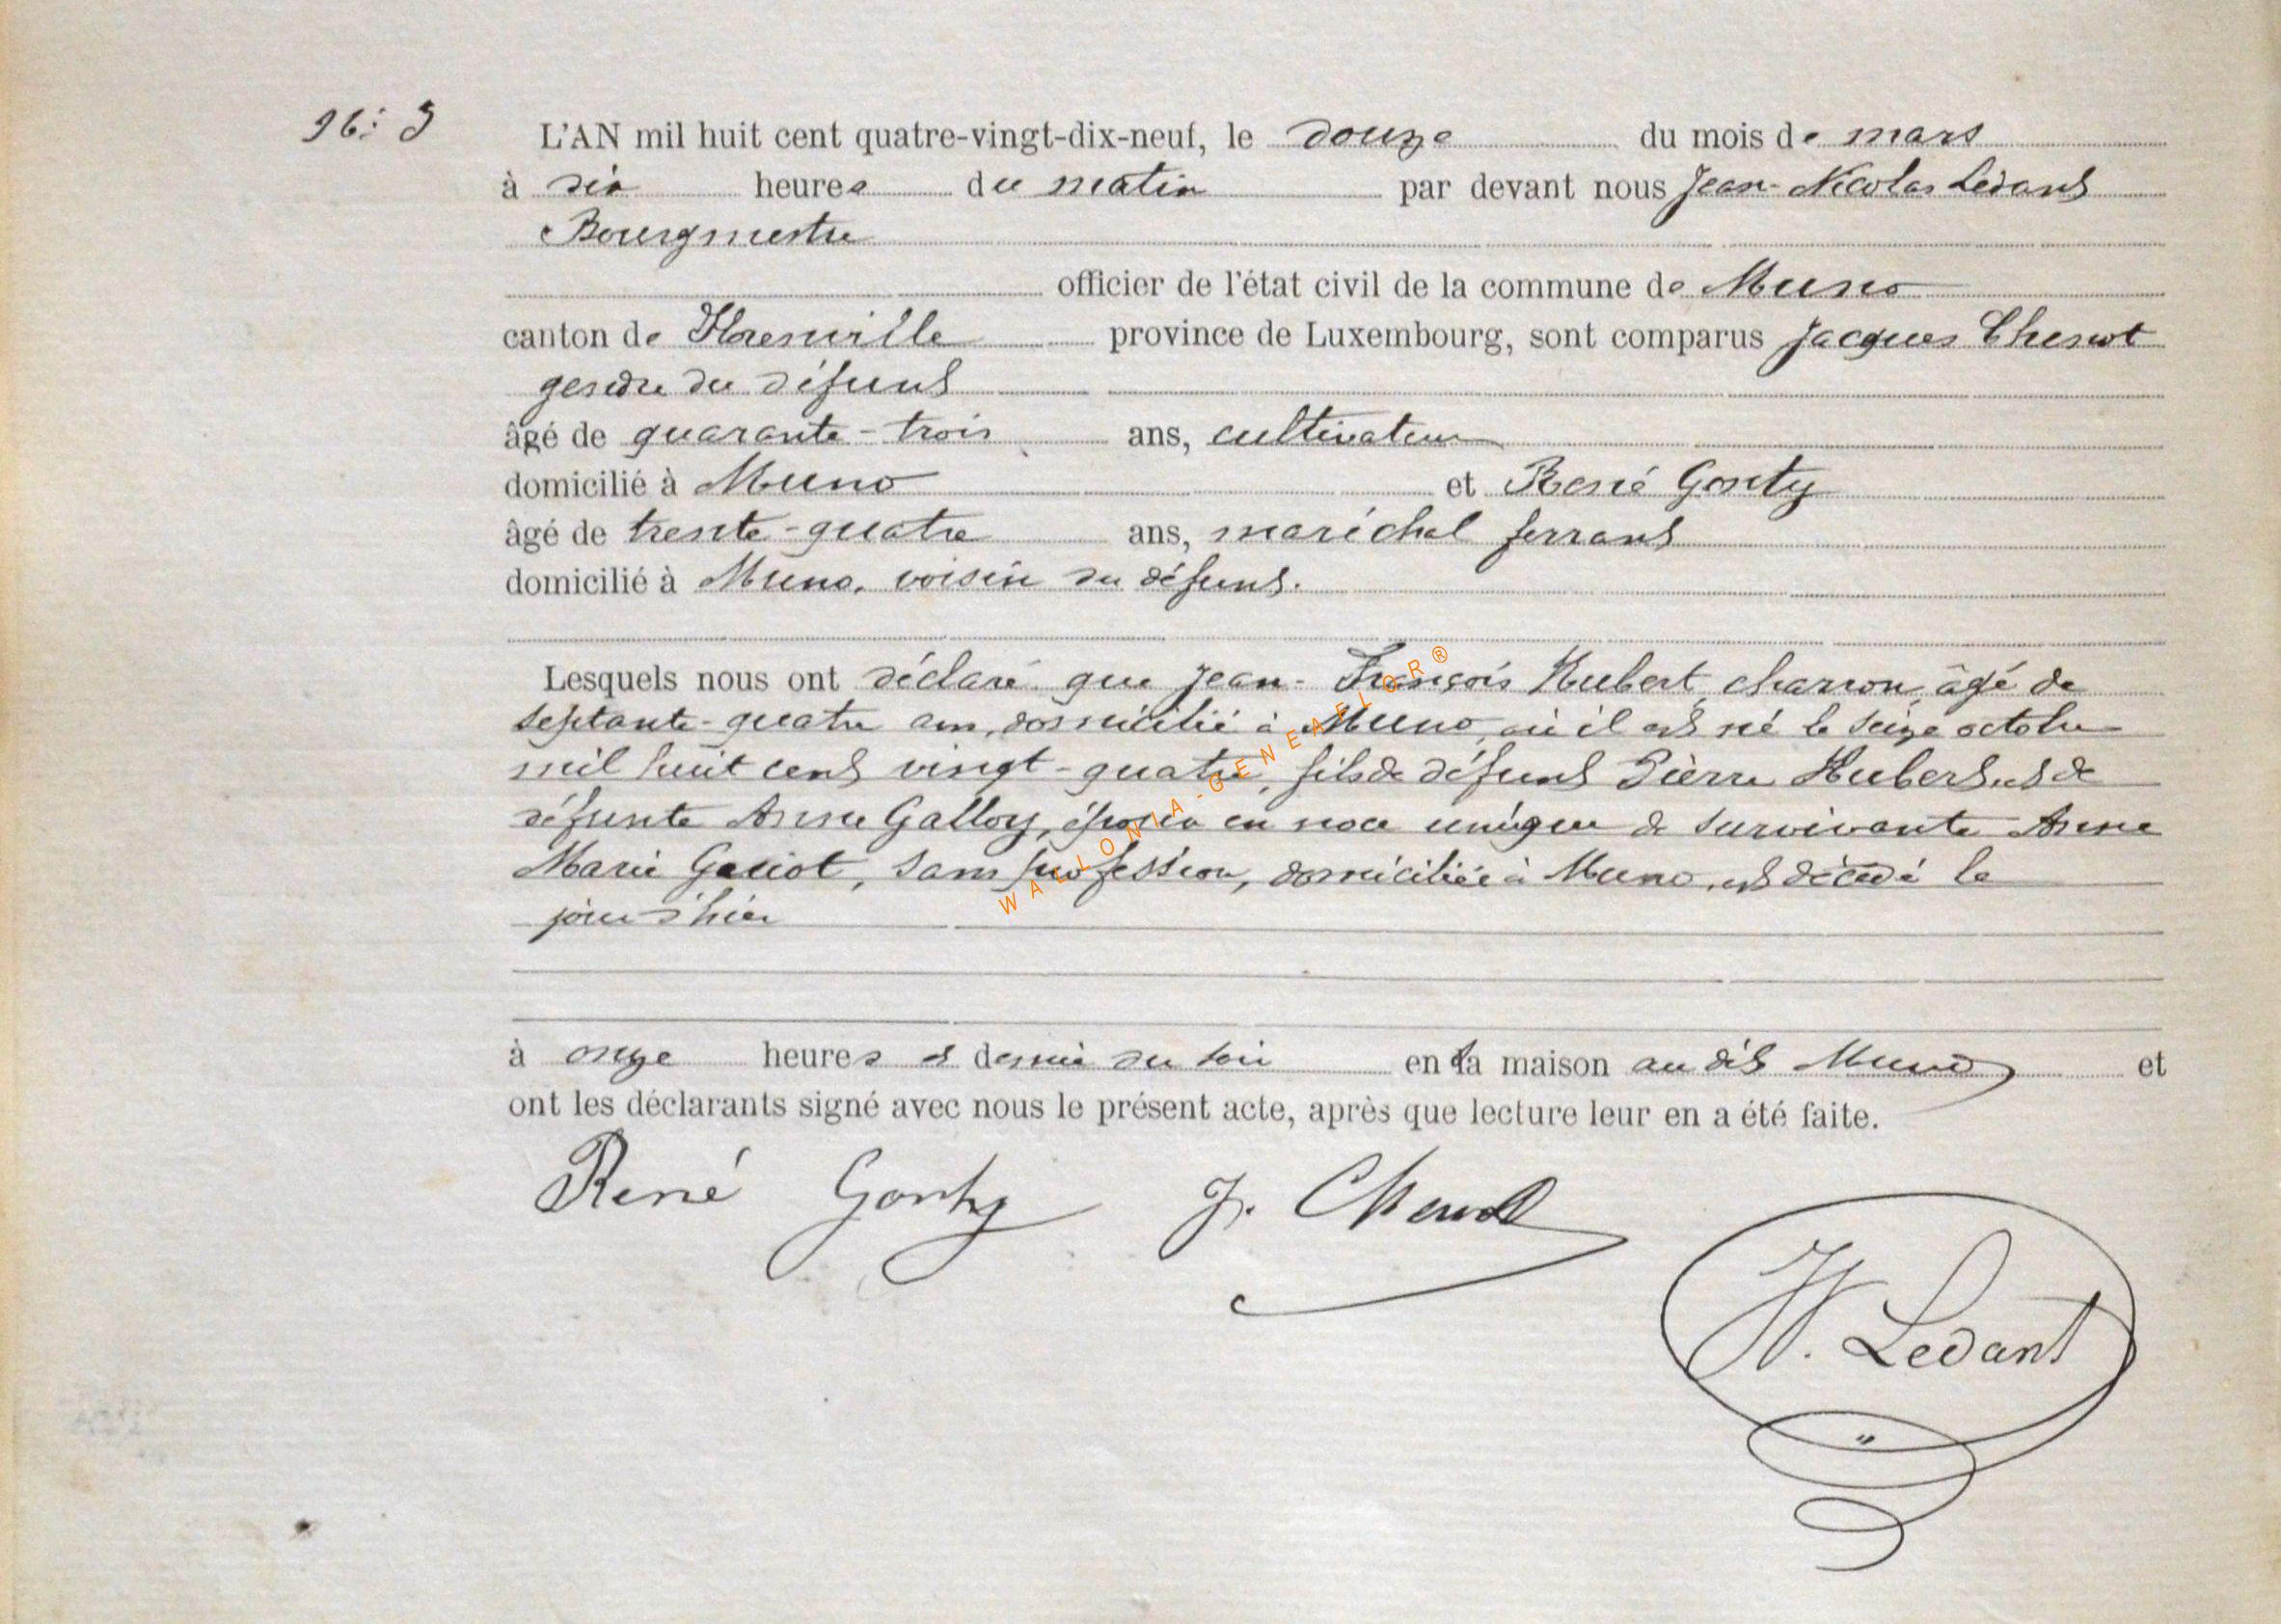 N°: 9
L'AN mil huit cent quatre-vingt-dix-neuf, le douze du mois de mars
à dix heures du matin par devant nous Jean-Nicolas Ledant
Bourgmestre
officier de l'état civil de la commune de Muno
canton de Florenville province de Luxembourg, sont comparus Jacques Chenot
gendre du défunt
âgé de quarante-trois ans, cultivateur
domicilié à Muno et René Gonty
âgé de trente-quatre ans, maréchal ferrant
domicilié à Muno, voisin du défunt.
Lesquels nous ont déclaré que Jean-François Hubert, charron, âgé de
septante-quatre ans, domicilié à Muno, où il est né le seize octobre
mil huit cent vingt-quatre, fils de défunt Pierre Hubert et de
défunte Anne Galloy, époux en noce unique de survivante Anne
Marie Goriot, sans profession, domiciliée à Muno, est décédé le
jour d'hier
à onze heures et demie du soir en sa maison au dit Muno et
ont les déclarants signé avec nous le présent acte, après que lecture leur en a été faite.
René Gonty J. Chenot
N. Ledant
WALLONIA-GENEAELOR®